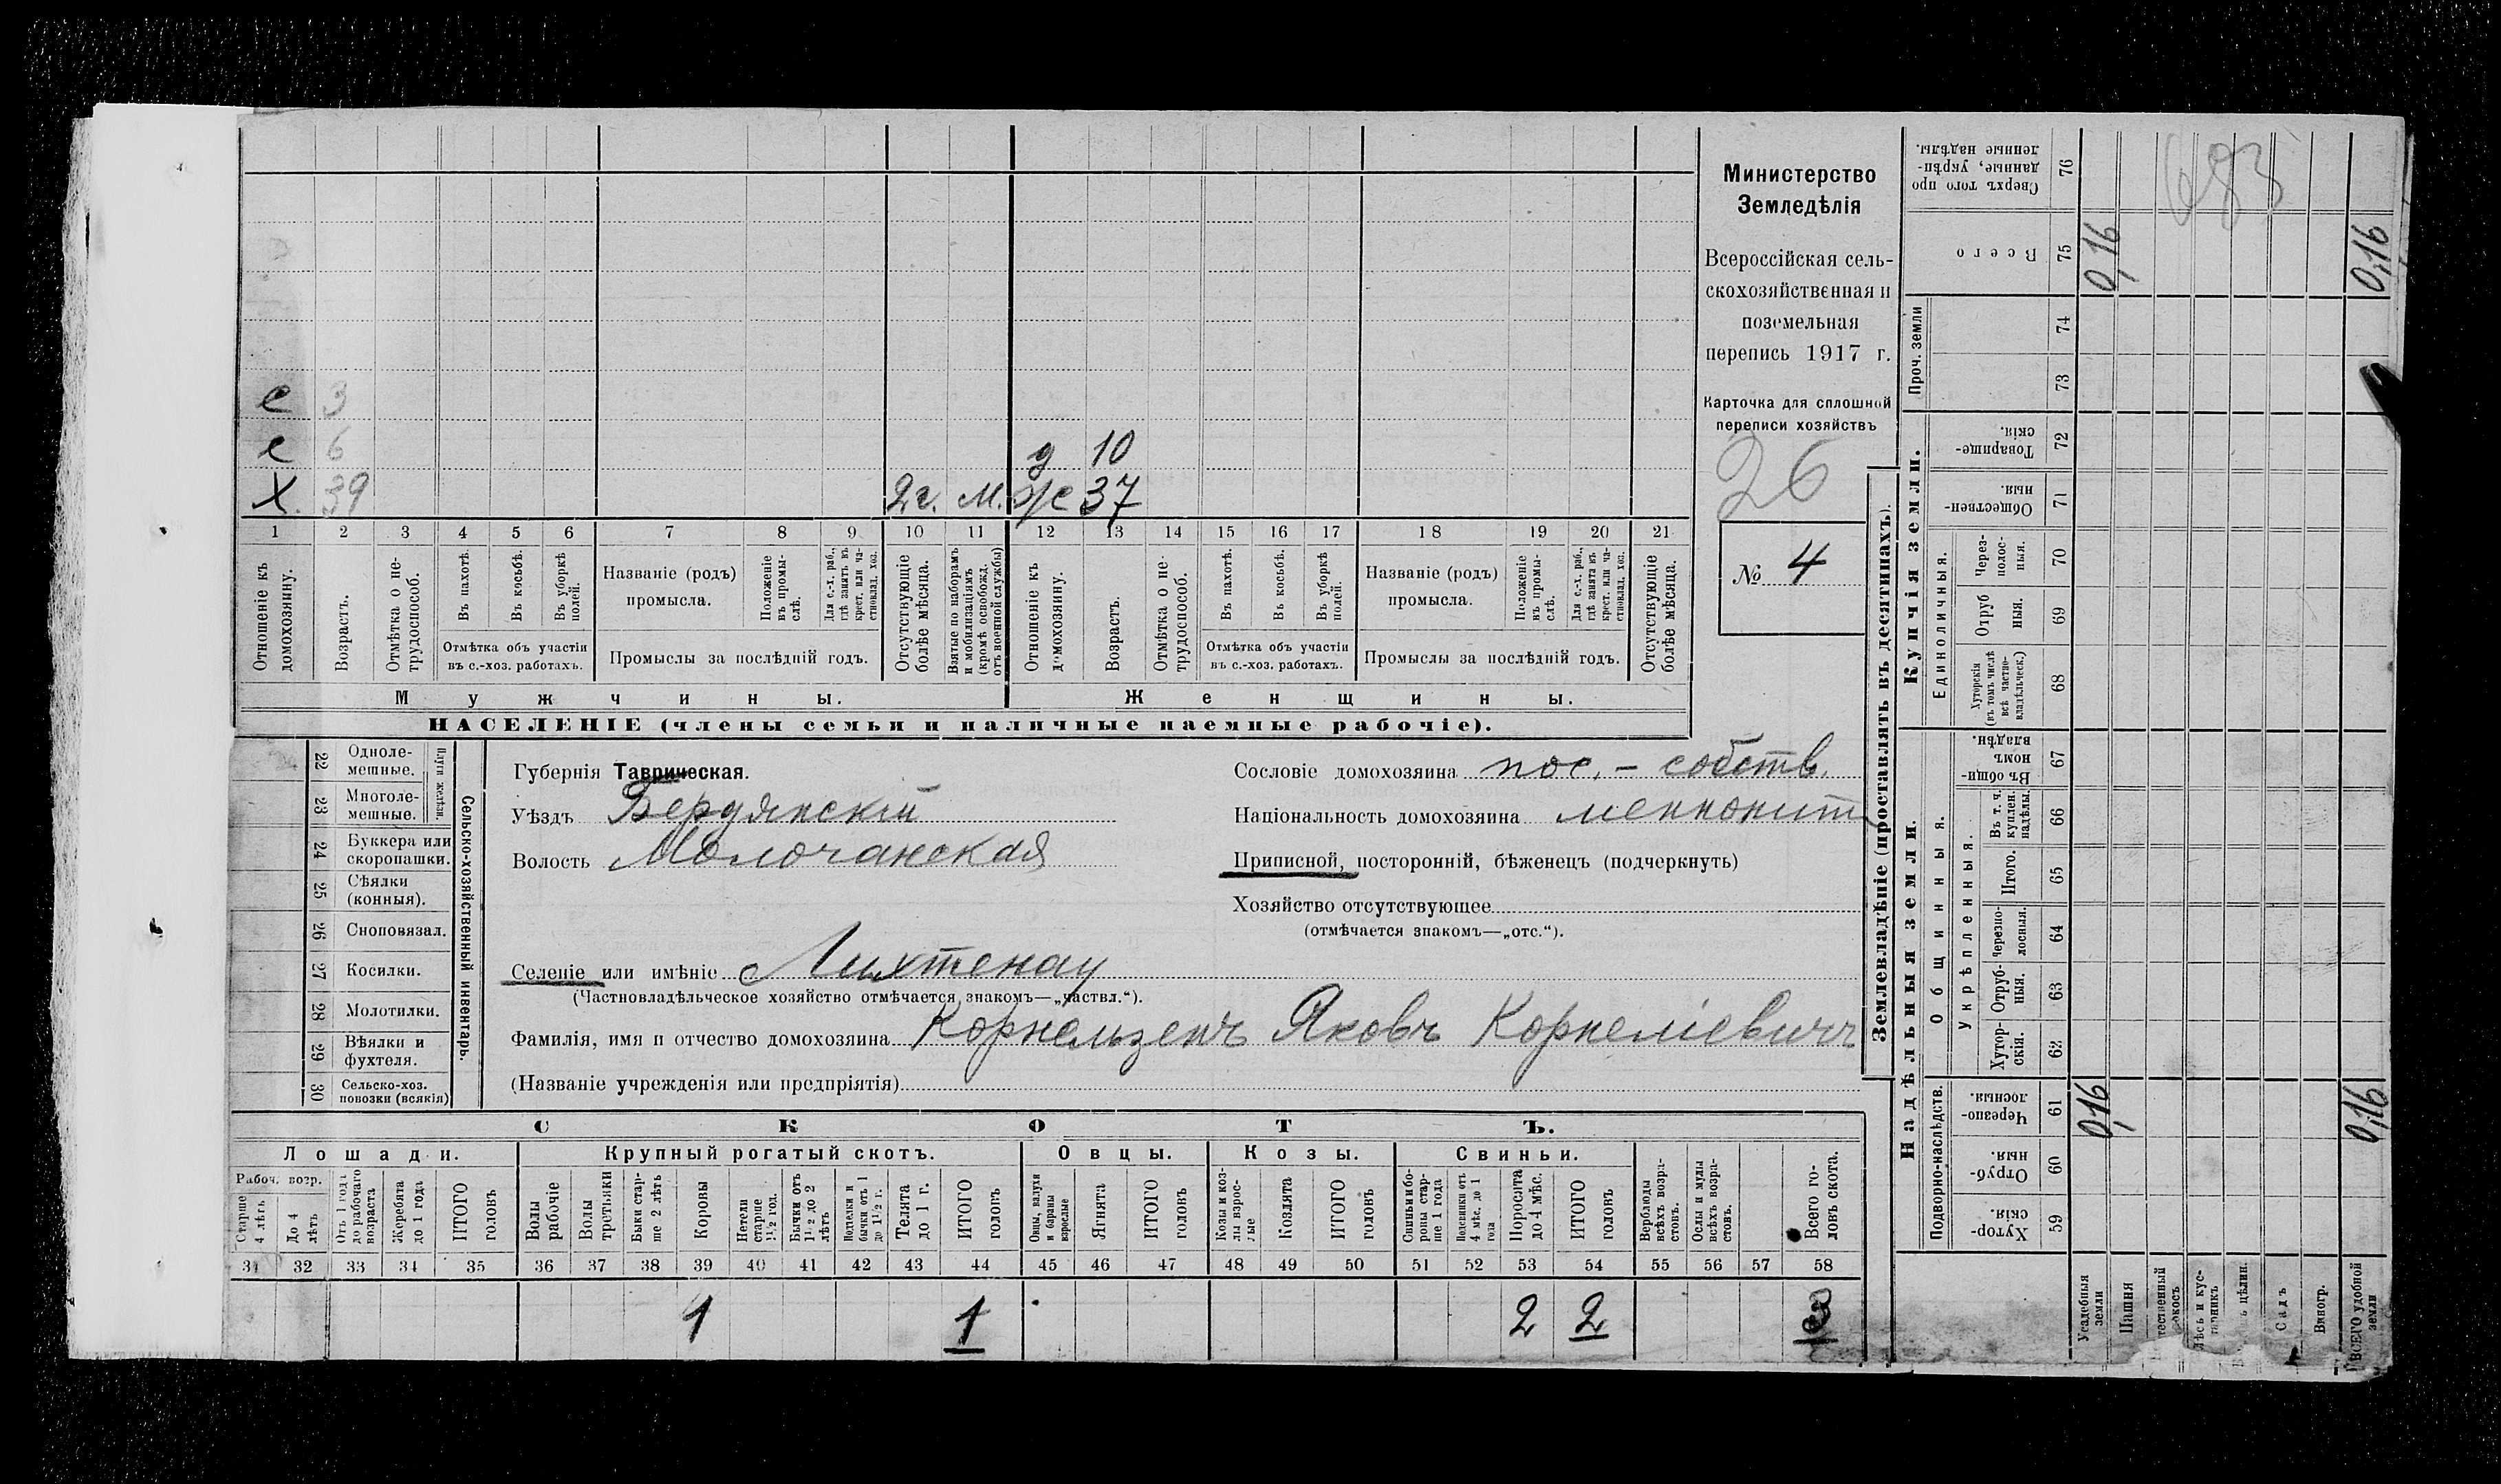 Министерство
Земледѣлія
Всероссійская сель-
скохозяйственная и
поземельная
перепись 1917 г.
Карточка для сплошной
переписи хозяйствъ
26
№ 4
с 3
с 6 д 10
Х. 39 2 г. м. ж 37
1 2 3 4 5 6 7 8 9 10 11 12 13 14 15 16 17 18 19 20 21
Отношеніе къ домохозяину.
Возрастъ.
Отмѣтка о не-трудоспособ.
Въ пахотѣ.
Въ косьбѣ.
Въ уборкѣ полей.
Отмѣтка объ участіи
въ с.-хоз. работахъ.
Названіе (родъ)
промысла.
Положеніе въ промы-слѣ.
Для с.-х. раб., гдѣ занятъ въ крест. или ча-стновлад. хоз.
Промыслы за послѣдній годъ.
Отсутствующіе болѣе мѣсяца.
Взятые по наборамъ и мобилизаціямъ (кромѣ освобожд. отъ военной службы)
Отношеніе къ домохозяину.
Возрастъ.
Отмѣтка о не-трудоспособ.
Въ пахотѣ.
Въ косьбѣ.
Въ уборкѣ полей.
Отмѣтка объ участіи
въ с.-хоз. работахъ.
Названіе (родъ)
промысла.
Положеніе въ промы-слѣ.
Для с.-х. раб., гдѣ занята въ крест. или ча-стновлад. хоз.
Промыслы за послѣдній годъ.
Отсутствующіе болѣе мѣсяца.
Мужчины.
Женщины.
НАСЕЛЕНІЕ (члены семьи и наличные наемные рабочіе).
22 Одноле-мешные.
23 Многоле-мешные.
Плуги желѣзн.
24 Буккера или скоропашки.
25 Сѣялки (конныя).
26 Сноповязал.
27 Косилки.
28 Молотилки.
29 Вѣялки и фухтеля.
30 Сельско-хоз. повозки (всякія)
Сельско-хозяйственный инвентарь.
Губернія Таврическая.
Уѣздъ Бердянскій
Волость Молочанская
Сословіе домохозяина пос. - собств.
Національность домохозяина меннонит
Приписной, посторонній, бѣженецъ (подчеркнуть)
Хозяйство отсутствующее
(отмѣчается знакомъ—„отс.“).
Селеніе или имѣніе с Лихтенау
(Частновладѣльческое хозяйство отмѣчается знакомъ—„частвл.“).
Фамилія, имя и отчество домохозяина Корнельзенъ Яковъ Корнеліевичъ
(Названіе учрежденія или предпріятія)
СКОТЪ.
Лошади. Крупный рогатый скотъ. Овцы. Козы. Свиньи.
Рабоч. возр.
Старше 4 лѣтъ
До 4 лѣтъ
Отъ 1 года до рабочаго возраста
Жеребята до 1 года
ИТОГО головъ
Волы рабочіе
Волы третьяки
Быки стар-ше 2 лѣтъ
Коровы
Нетели старше 1½ год.
Бычки отъ 1½ до 2 лѣтъ
Подтелки и бычки отъ 1 до 1½ г.
Телята до 1 г.
ИТОГО головъ
Овцы, валухи и бараны взрослые
Ягнята
ИТОГО головъ
Козы и коз-лы взрос-лые
Козлята
ИТОГО головъ
Свиньи и бо-ровы стар-ше 1 года
Подсвинки отъ 4 мѣс. до 1 года
Поросята до 4 мѣс.
ИТОГО головъ
Верблюды всѣхъ возра-стовъ.
Ослы и мулы всѣхъ возра-стовъ.
Всего го-ловъ скота.
31 32 33 34 35 36 37 38 39 40 41 42 43 44 45 46 47 48 49 50 51 52 53 54 55 56 57 58
1 1 2 2 3
Землевладѣніе (проставлять въ десятинахъ).
Надѣльныя земли.
Купчія земли.
Проч. земли
Подворно-наслѣдств.
Общинныя.
Укрѣпленныя.
Единоличныя.
Хутор-скія. 59
Отруб-ныя. 60
Черезпо-лосныя. 61
Хутор-скія. 62
Отруб-ныя. 63
Черезпо-лосныя. 64
Итого. 65
Въ т. ч. куплен. надѣлы. 66
Въ общи-номъ владѣн. 67
Хуторскія (въ томъ числѣ всѣ частно-владѣльческ.) 68
Отруб ныя. 69
Через-полос-ныя. 70
Обществен-ныя. 71
Товарище-скія. 72
73
74
Всего 75
Сверхъ того про данные, укрѣп-ленные надѣлы. 76
Усадебныя земли 0,16 0,16
Пашня
Садъ
Виногр.
ВСЕГО удобной земли 0,16 0,16
683